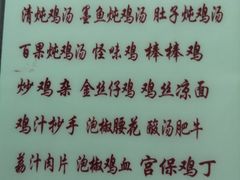 清炖鸡汤 墨鱼炖鸡汤 肚子炖鸡汤
百果炖鸡汤 怪味鸡 棒棒鸡
炒鸡杂 金丝仔鸡 鸡丝凉面
鸡汁抄手 泡椒腰花 酸汤肥牛
荔汁肉片 泡椒鸡血 宫保鸡丁